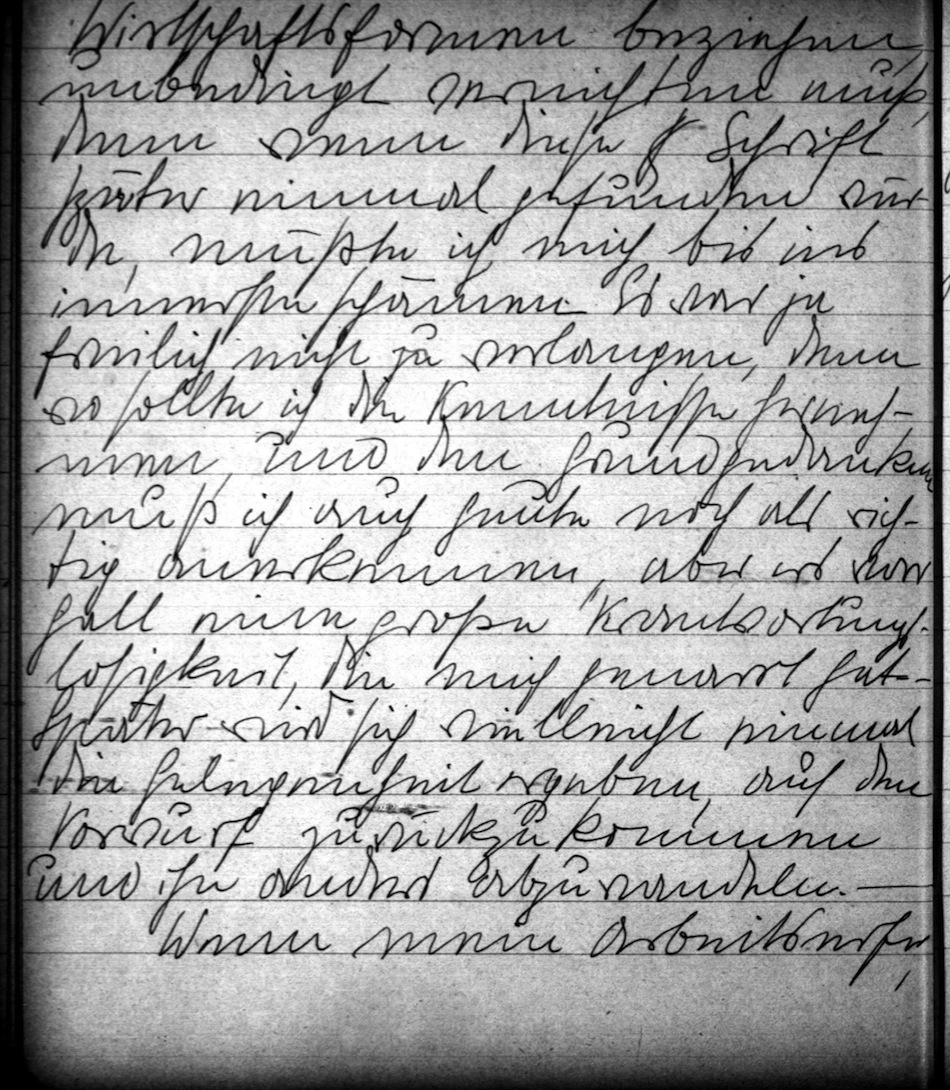 Wirtschaftsformen beziehen,
unbedingt vernichten muß,
denn wenn diese Schrift
später einmal gefunden wür-
de, müßte ich mich bis ins
innerste schämen. Es war ja
freilich nicht zu verlangen, denn
wo sollte ich die Kenntnisse herneh-
men, und den Grundgedanken
muß ich auch heute noch als rich-
tig anerkennen, aber es war
halt eine große Verantwortungs-
losigkeit, die mich genarrt hat.-
Später wird sich vielleicht einmal
die Gelegenheit ergeben, auf den
Vorwurf zurückzukommen
und ihn anders abzuwandeln. —
Wenn meine